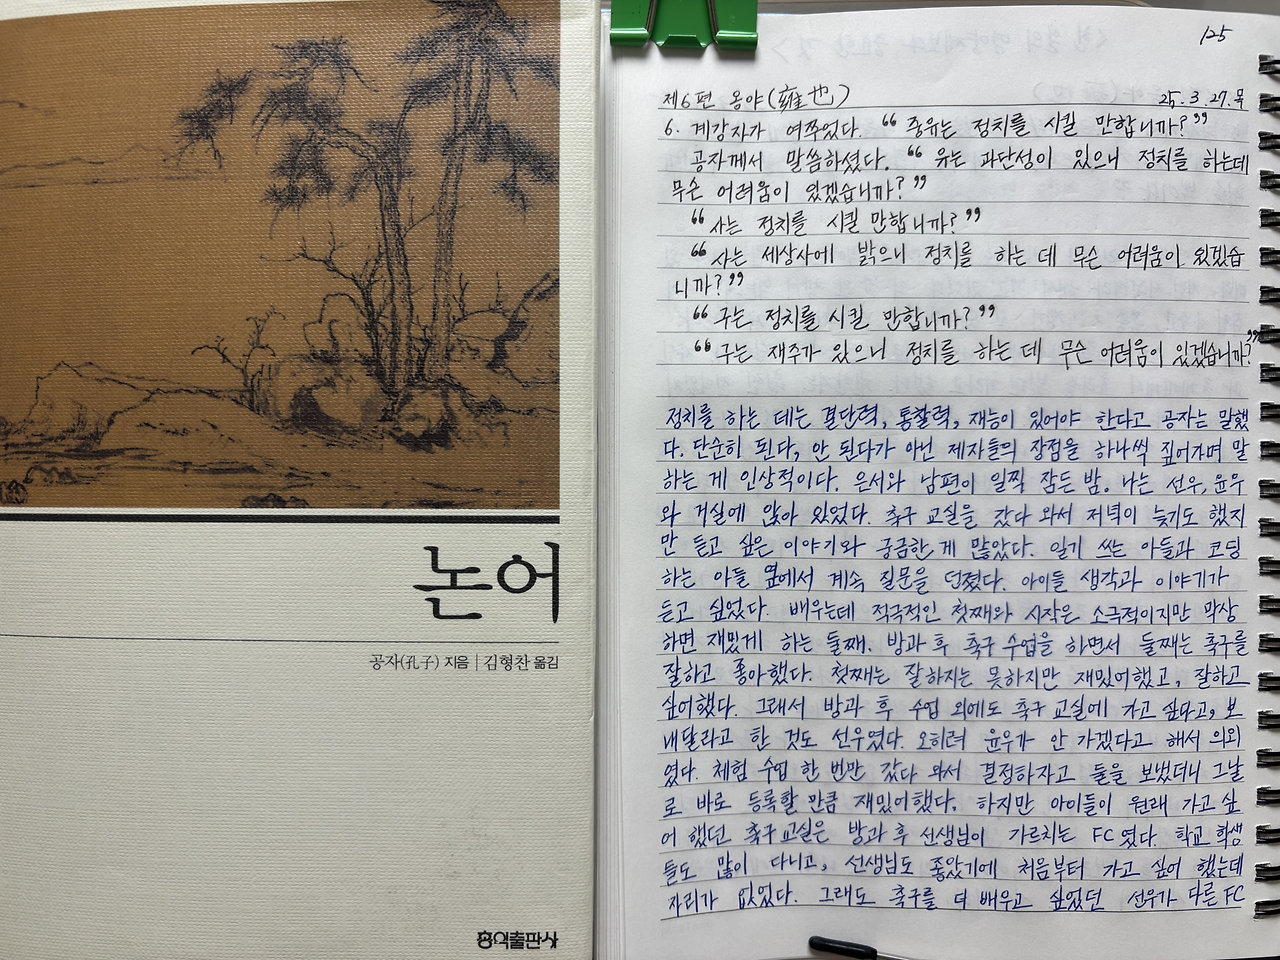 논어
공자(孔子) 지음 | 김형찬 옮김
홍익출판사
125
제6편 옹야(雍也) 25.3.27.목
6. 계강자가 여쭈었다. “중유는 정치를 시킬 만합니까?”
공자께서 말씀하셨다. “유는 과단성이 있으니 정치를 하는데
무슨 어려움이 있겠습니까?”
“사는 정치를 시킬 만합니까?”
“사는 세상사에 밝으니 정치를 하는 데 무슨 어려움이 있겠습
니까?”
“구는 정치를 시킬 만합니까?”
“구는 재주가 있으니 정치를 하는 데 무슨 어려움이 있겠습니까?”
정치를 하는 데는 결단력, 통찰력, 재능이 있어야 한다고 공자는 말했
다. 단순히 된다, 안 된다가 아닌 제자들의 장점을 하나씩 짚어가며 말
하는 게 인상적이다. 은서와 남편이 일찍 잠든 밤. 나는 선우, 윤우
와 거실에 앉아 있었다. 축구 교실을 갔다 와서 저녁이 늦기도 했지
만 듣고 싶은 이야기와 궁금한 게 많았다. 일기 쓰는 아들과 코딩
하는 아들 옆에서 계속 질문을 던졌다. 아이들 생각과 이야기가
듣고 싶었다. 배우는데 적극적인 첫째와 시작은 소극적이지만 막상
하면 재밌게 하는 둘째. 방과 후 축구 수업을 하면서 둘째는 축구를
잘하고 좋아했다. 첫째는 잘하지는 못하지만 재밌어했고, 잘하고
싶어했다. 그래서 방과 후 수업 외에도 축구 교실에 가고 싶다고, 보
내달라고 한 것도 선우였다. 오히려 윤우가 안 가겠다고 해서 의외
였다. 체험 수업 한 번만 갔다 와서 결정하자고 둘을 보냈더니 그날
로 바로 등록할 만큼 재밌어했다. 하지만 아이들이 원래 가고 싶
어 했던 축구 교실은 방과 후 선생님이 가르치는 FC였다. 학교 학생
들도 많이 다니고, 선생님도 좋았기에 처음부터 가고 싶어 했는데
자리가 없었다. 그래도 축구를 더 배우고 싶었던 선우가 다른 FC